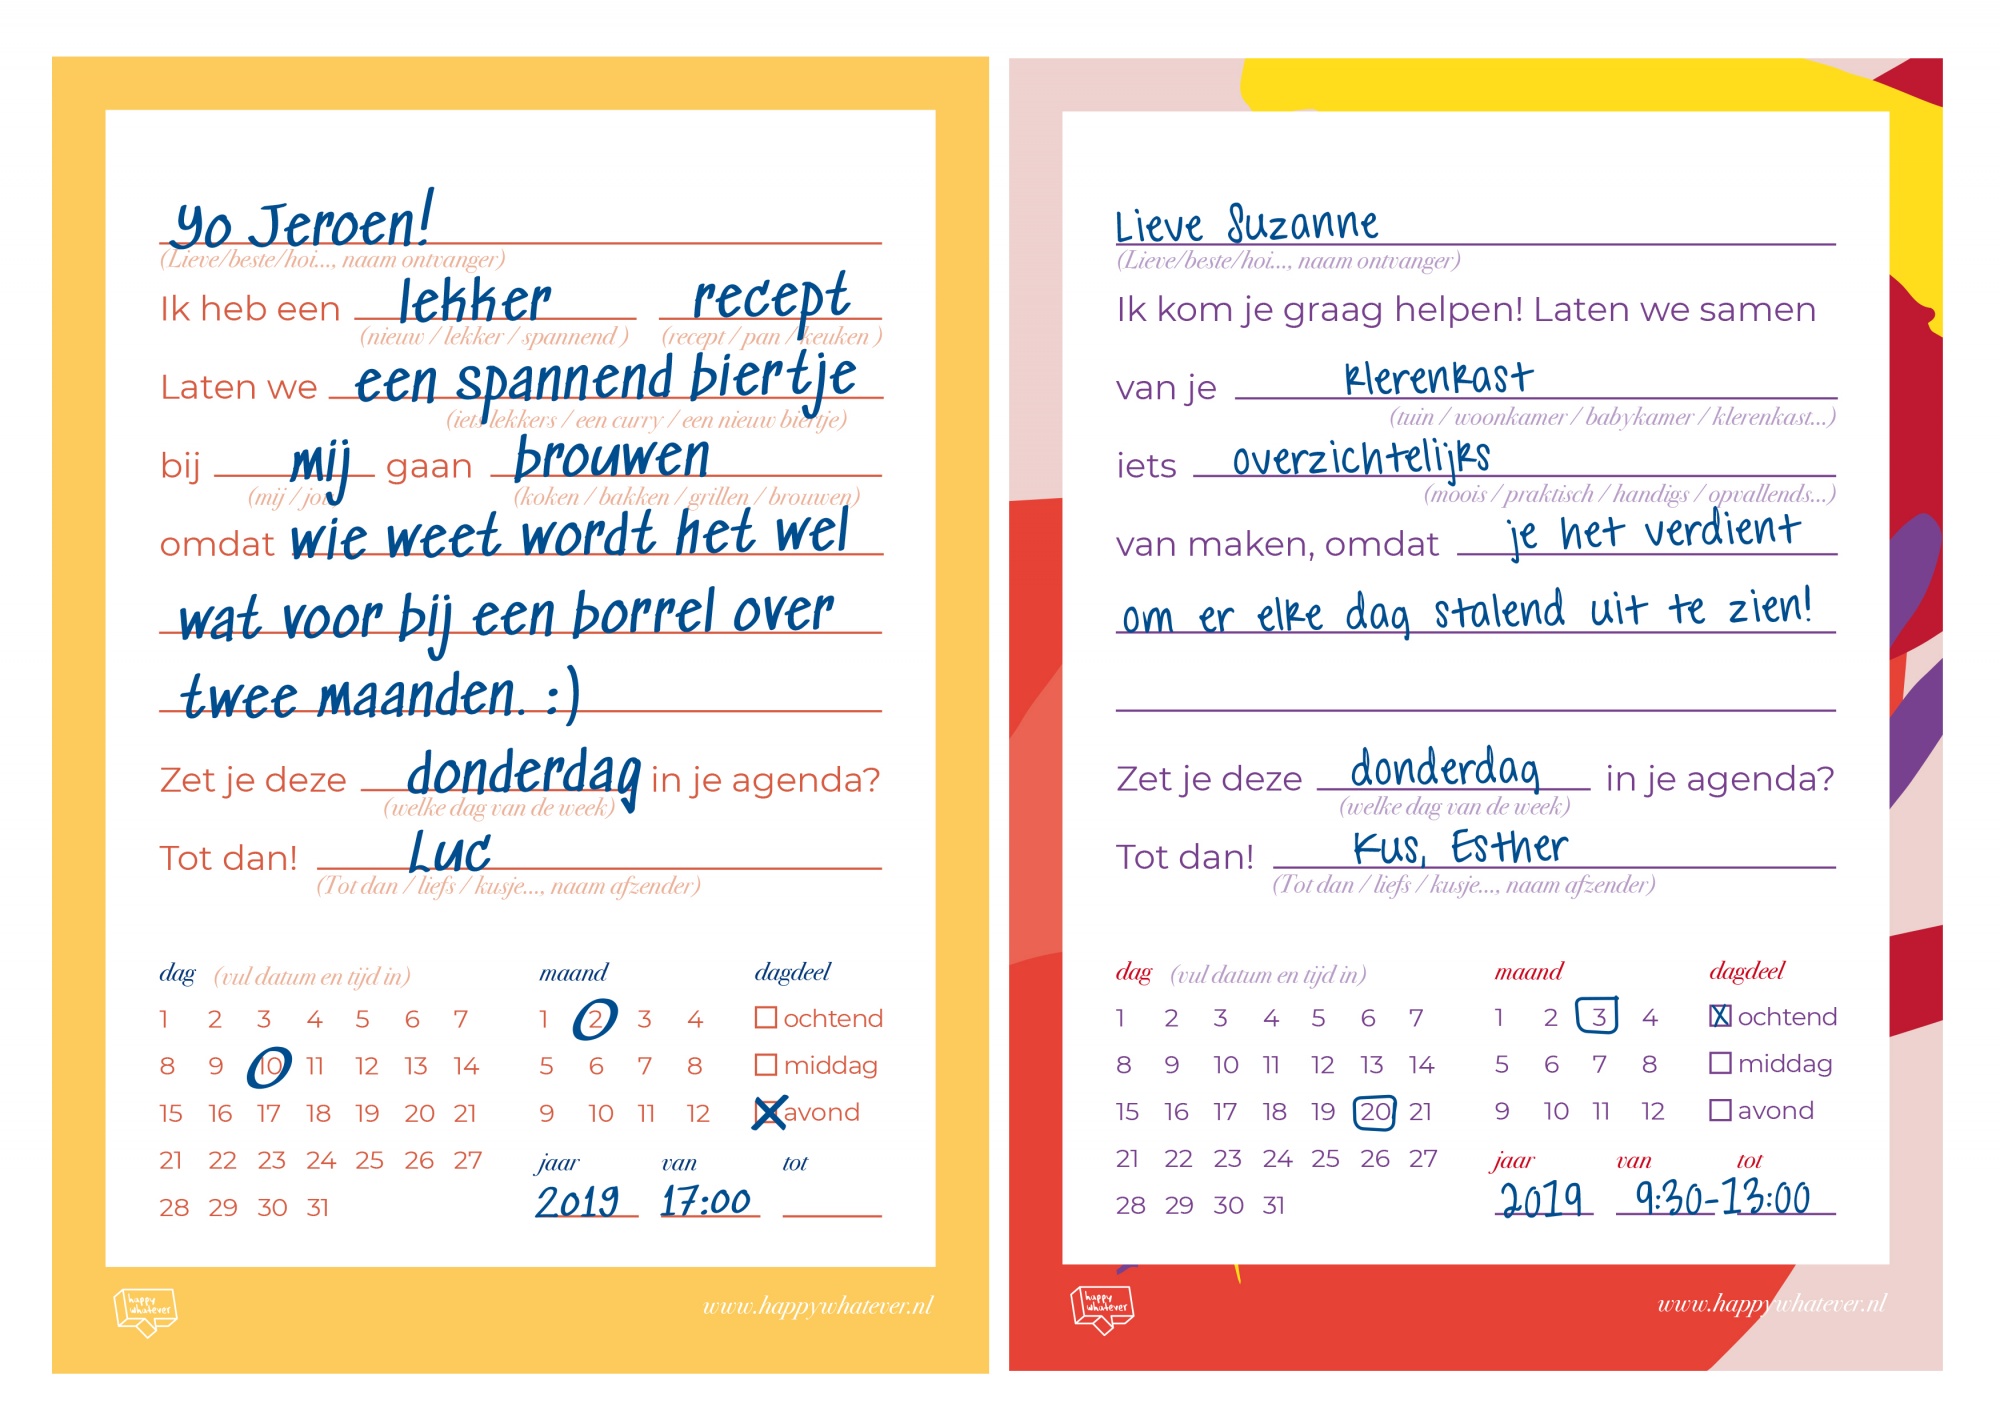 Yo Jeroen!
(Lieve/beste/hoi..., naam ontvanger)
Ik heb een lekker recept
(nieuw / lekker / spannend ) (recept / pan / keuken )
Laten we een spannend biertje
(iets lekkers / een curry / een nieuw biertje)
bij mij gaan brouwen
(mij / jou) (koken / bakken / grillen / brouwen)
omdat wie weet wordt het wel
wat voor bij een borrel over
twee maanden. :)
Zet je deze donderdag in je agenda?
(welke dag van de week)
Tot dan! Luc
(Tot dan / liefs / kusje..., naam afzender)
dag (vul datum en tijd in) maand dagdeel
1 2 3 4 5 6 7 1 2 3 4 ochtend
8 9 10 11 12 13 14 5 6 7 8 middag
15 16 17 18 19 20 21 9 10 11 12 avond
21 22 23 24 25 26 27 jaar van tot
28 29 30 31 2019 17:00
happy
whatever
www.happywhatever.nl
Lieve Suzanne
(Lieve/beste/hoi..., naam ontvanger)
Ik kom je graag helpen! Laten we samen
van je klerenkast
(tuin / woonkamer / babykamer / klerenkast...)
iets overzichtelijks
(moois / praktisch / handigs / opvallends...)
van maken, omdat je het verdient
om er elke dag stalend uit te zien!
Zet je deze donderdag in je agenda?
(welke dag van de week)
Tot dan! Kus, Esther
(Tot dan / liefs / kusje..., naam afzender)
dag (vul datum en tijd in) maand dagdeel
1 2 3 4 5 6 7 1 2 3 4 ochtend
8 9 10 11 12 13 14 5 6 7 8 middag
15 16 17 18 19 20 21 9 10 11 12 avond
21 22 23 24 25 26 27 jaar van tot
28 29 30 31 2019 9:30-13:00
happy
whatever
www.happywhatever.nl